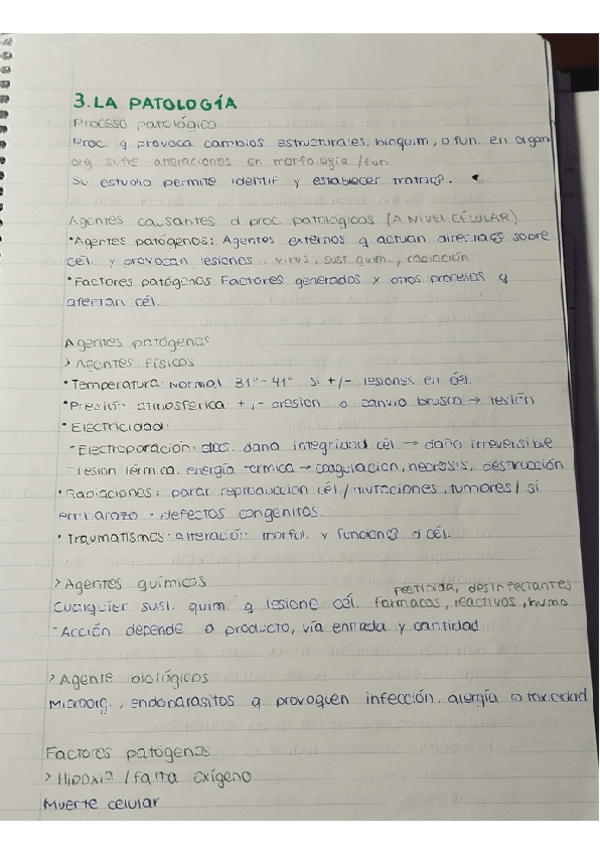 3. LA PATOLOGÍA
Proceso patológico
Proc q provoca cambios estructurales, bioquim, o fun. en organ
org sufre alteraciones en morfología /fun.
Su estudio permite identif y establecer
Agentes causantes d proc. patológicos (A NIVEL CÉLULAR)
• Agentes patógenos: Agentes externos q actuan sobre
cél. y provocan lesiones. virus, sust quim., radiación
• Factores patógenos Factores generados x otros procesos q
afectan cél.
Agentes patógenos
> Agentes físicos
• Temperatura: Normal 31° - 41° si +/- lesiones en cél.
• Presión atmosferica: +,- presion o canvio brusco → lesión
• Electricidad:
- Electroporación: elec. dana integridad cél → daño irreversible
- lesion térmica: energía termica → coagulacion, necrosis, destrucción
• Radiaciones: parar reproduccion cél / mutaciones, tumores / si
embarazo · defectos congénitos.
• Traumatismos: alteración morfol. y d cél.
> Agentes químicos
pesticida, desinfectantes
Cualquier sust. quim q lesione cél. farmacos, reactivos, humo
- Acción depende d producto, vía entrada y cantidad
> Agente biológicos
Microorg., endoparasitos q provoquen infección, alergia o toxicidad
Factores patogenos
> Hipoxia / falta oxígeno
Muerte celular